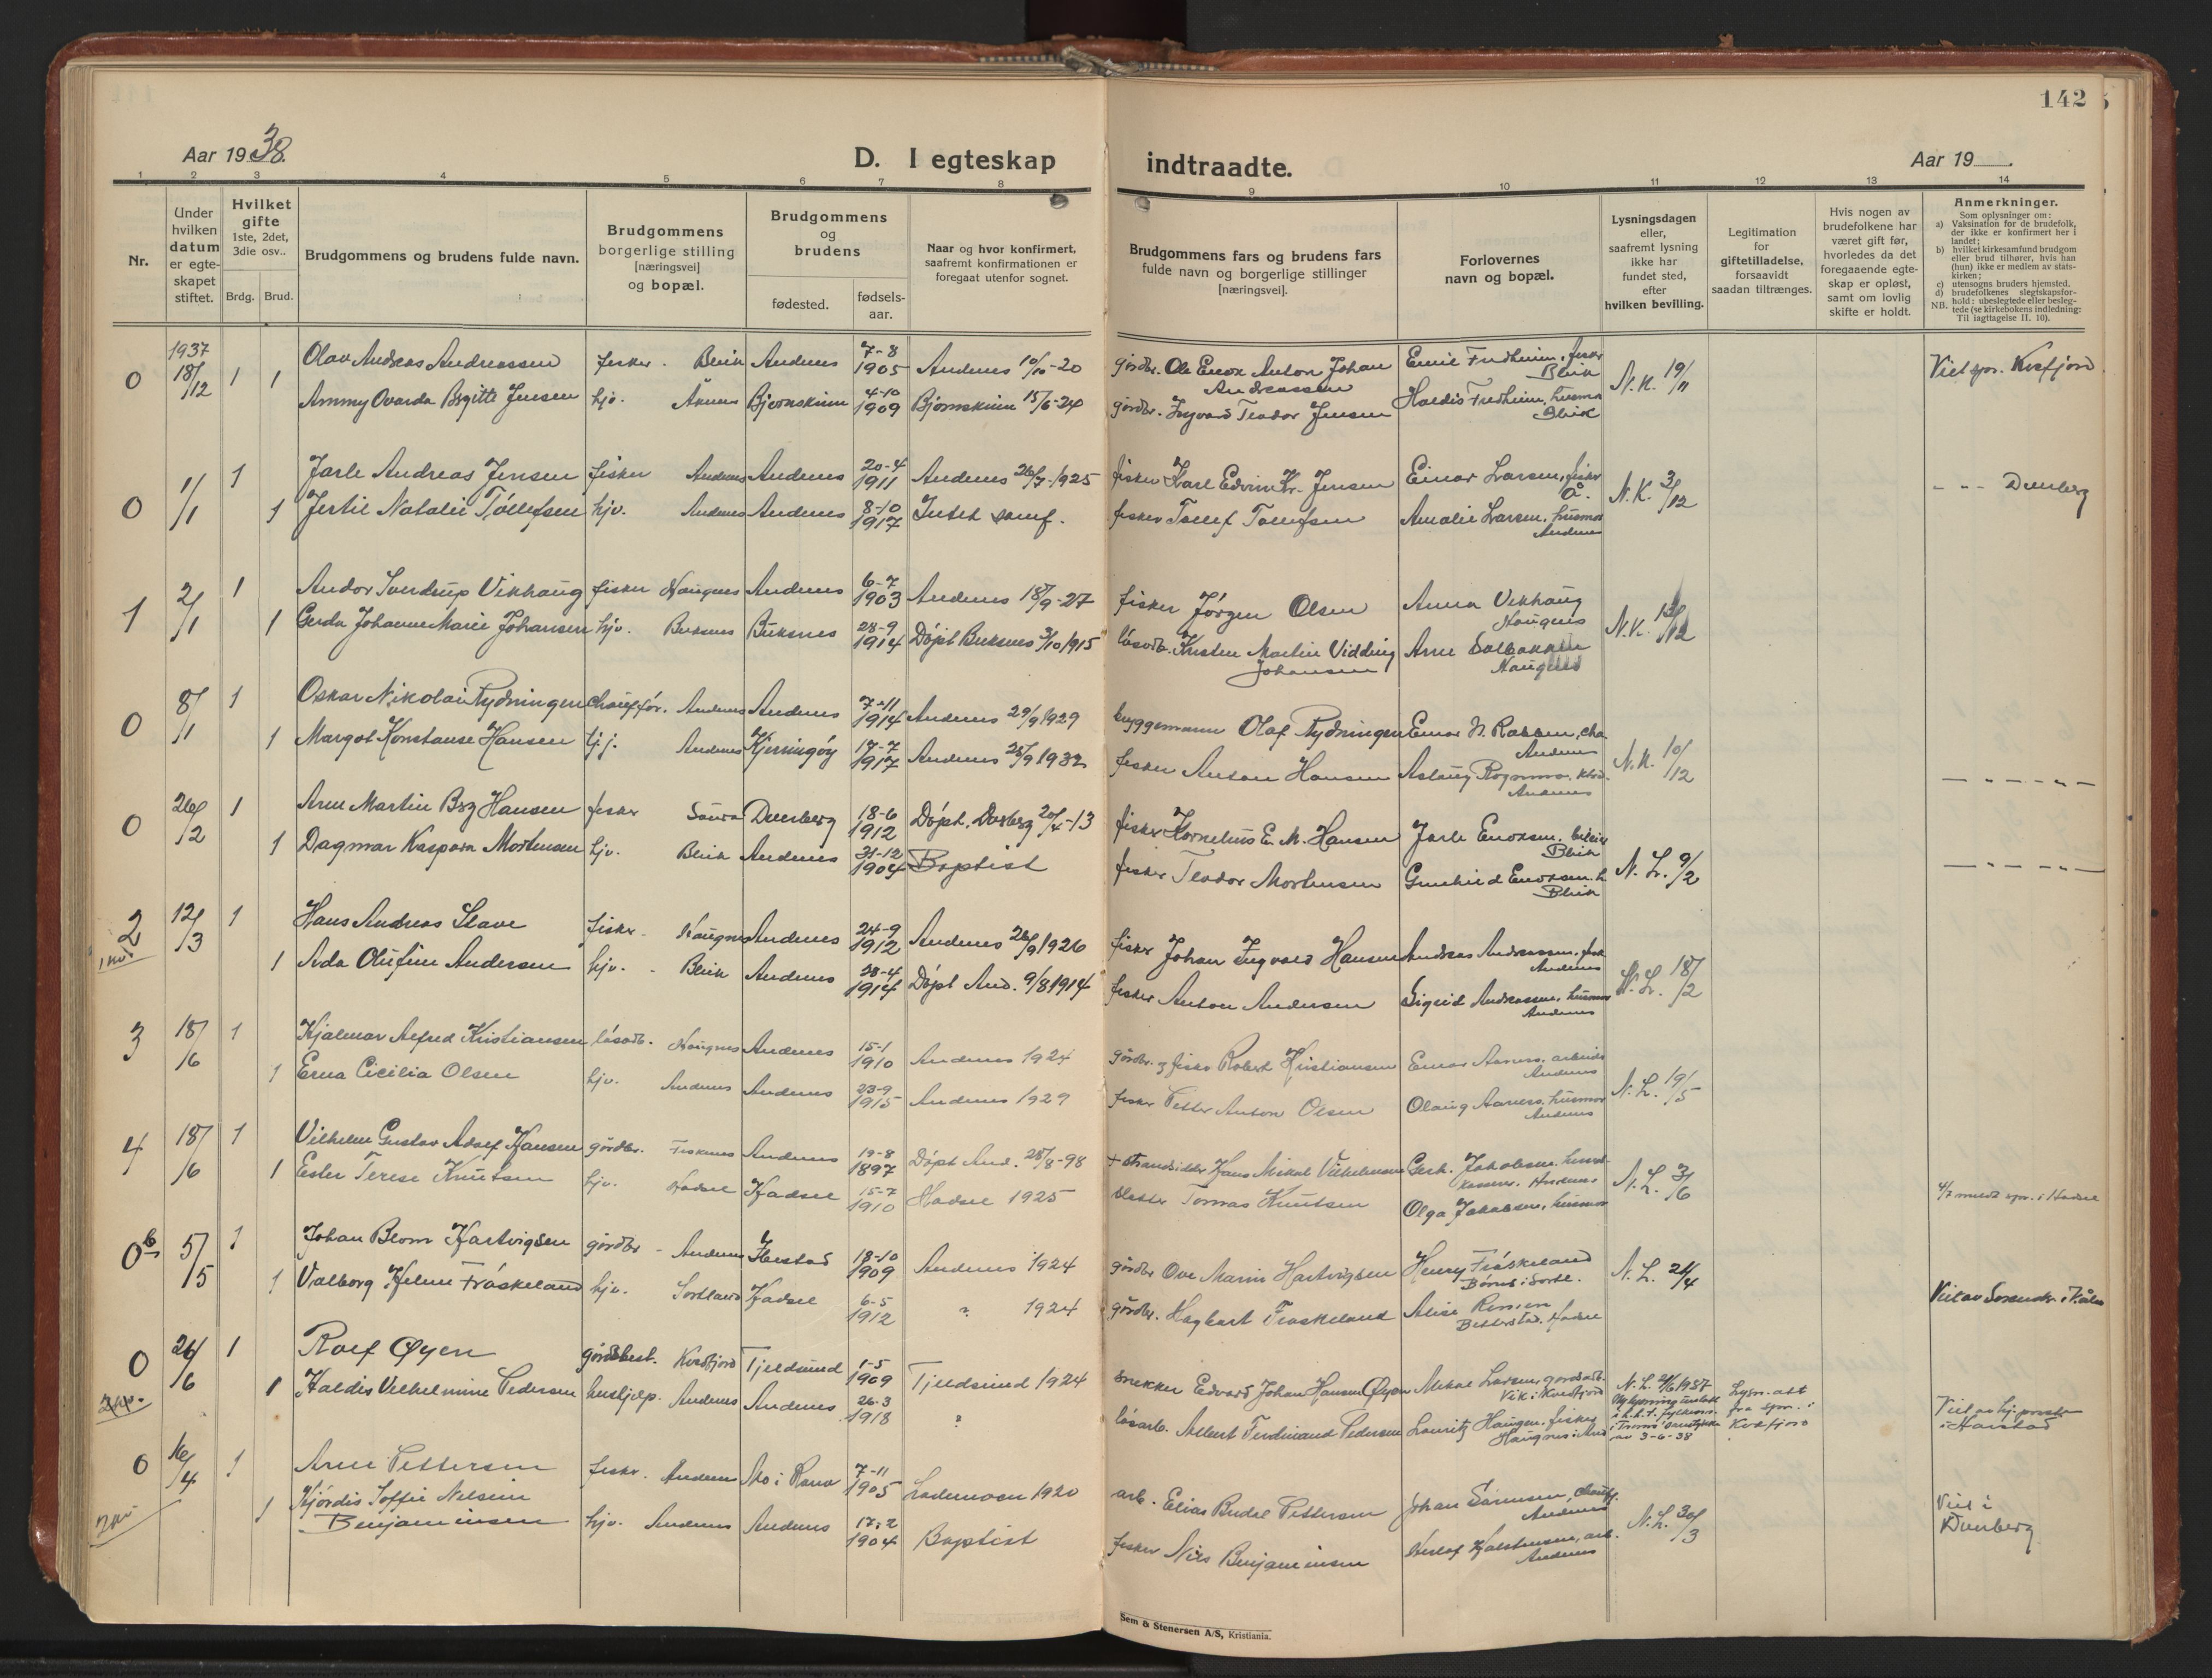 142
Aar 1938.
D. I egteskap
indtraadte.
Aar 19 .
1 2 3 4 5 6 7 8 9 10 11 12 13 14
Nr.
Under hvilken datum er egteskapet stiftet.
Hvilket gifte 1ste, 2det, 3die osv..
Brdg. Brud.
Brudgommens og brudens fulde navn.
Brudgommens borgerlige stilling [næringsvei] og bopæl.
Brudgommens og brudens
fødested.
fødsels-aar.
Naar og hvor konfirmert, saafremt konfirmationen er foregaat utenfor sognet.
Brudgommens fars og brudens fars fulde navn og borgerlige stillinger [næringsvei].
Forlovernes navn og bopæl.
Lysningsdagen eller, saafremt lysning ikke har fundet sted, efter hvilken bevilling.
Legitimation for giftetilladelse, forsaavidt saadan tiltrænges.
Hvis nogen av brudefolkene har været gift før, hvorledes da det foregaaende egteskap er opløst, samt om lovlig skifte er holdt.
Anmerkninger.
Som oplysninger om:
a) Vaksination for de brudefolk, der ikke er konfirmert her i landet;
b) hvilket kirkesamfund brudgom eller brud tilhører, hvis han (hun) ikke er medlem av statskirken;
c) utensogns bruders hjemsted.
d) brudefolkenes slegtskapsforhold: ubeslegtede eller beslegtede (se kirkebokens indledning:
NB. Til iagttagelse II. 10).
0 1937 18/12 1 Olav Andreas Andreassen fisker. Bleik Andenes 7-8 1905 Andenes 10/10-20 gårdbr. Ole Enok Anton Johan Andreassen Emil Fredheim, fisker Bleik N.K. 19/11 Viet spr. Kvefjord
1 Ammy Ovarda Birgitte Jensen hjv. Åknes Bjørnskinn 4-10 1909 Bjørnskinn 15/6-24 gårdbr. Ingvard Teodor Jensen Haldis Fredheim, husmor Bleik
0 1/1 1 Jarle Andreas Jensen fisker Andenes Andenes 20-4 1911 Andenes 26/7-1925 fisker Karl Edvin Kr. Jensen Einar Larsen, fisker Å. N.K. 3/12 - " - Dverberg
1 Jertil Natalie Tollefsen hjv. Andenes Andenes 8-10 1917 Intet samf. fisker Tollef Tollefsen Amalie Larsen, husmor Andenes
1 2/1 1 Andor Sverdrup Vikhaug fisker Haugnes Andenes 6-7 1903 Andenes 18/9-27 fisker Jørgen Olsen Anna Vikhaug Haugnes N.K. 13/12
1 Gerda Johanne Marie Johansen hjv. Buksnes Buksnes 28-9 1914 Døpt Buksnes 3/10 1915 løsarb. Kristen Martin Vidding Johansen Arne Solbakken Haugnes
0 8/1 1 Oskar Nikolai Rydningen chauffør. Andenes Andenes 7-11 1914 Andenes 29/9 1929 bryggemann Olaf Rydningen Einar N. Robben, cha. Andenes N.K. 10/12 - " - " -
1 Margot Konstanse Hansen hj. Andenes Kjerringøy 17-7 1917 Andenes 25/9 1932 fisker Anton Hansen Aslaug Andenes
0 26/2 1 Arne Martin Berg Hansen fisker Saura Dverberg 18-6 1912 Døpt. Dverberg 20/4-13 fisker Kornelius E. M. Hansen Jarle Enoksen, Bleik N.L. 9/2 - " - " -
1 Dagmar Kaspara Mortensen hjv. Bleik Andenes 31-12 1904 Baptist fisker Teodor Mortensen Gunhild Enoksen. h. Bleik
2 12/3 1 Hans Andreas Slave fisker. Haugnes Andenes 24-9 1912 Andenes 26/9 1926 fisker Johan Ingvald Hansen Andreas Andreassen, fisk Andenes N.L. 18/2
1 Ada Olufine Andersen hjv. Bleik Andenes 28-4 1914 Døpt And. 9/8 1914 fisker Anton Andersen Sigrid Andreassen, husmor Andenes
3 18/6 1 Hjalmar Alfred Kristiansen løsarb. Haugnes Andenes 15-1 1910 Andenes 1924 gårdbr. og fisker Robert Kristiansen Einar Aanes, arbeider Andenes N.L. 19/5
1 Erna Cicilia Olsen hjv. Andenes Andenes 23-9 1915 Andenes 1929 fisker Petter Anton Olsen Olaug Aanes, husmor Andenes
4 18/6 1 Vilhelm Gustav Adolf Hansen gårdbr. Fiskenes Andenes 19-8 1897 Døpt And. 28/8-98 + strandsidder Hans Mikal Vilhelmsen Gerh. Jakobsen, Andenes N.L. 3/6
1 Ester Terese Knutsen hjv. Hadsel Hadsel 15-7 1910 Hadsel 1925 Tomas Knutsen Olga Jakobsen, husmor
0 6 5/5 1 Johan Blom Hartvigsen gårdbr. Andenes Ibestad 18-10 1909 Andenes 1924 gårdbr. Ove Marin Hartvigsen Henry Frøskeland Børnes i Sortl. N.L. 21/4
1 Valborg Helene Frøskeland hjv. Sortland Hadsel 6-5 1912 ? 1924 gårdbr. Hagbart Frøskeland Alise Hadsel
0 26/6 1 Rolf Øyen gårdbest. Kvefjord Tjeldsund 1-5 1909 Tjeldsund 1924 snekker Edvard Johan Hansen Øyen Mikal Larsen, gårdarb. Vik i Kvefjord N.L. 21/6 1937 av 3-6-38 Lysn. att fra spr. i Kvefjord Viet av hj.presten i Harstad
1 Haldis Vilhelmine Pedersen hushjelp. Andenes Andenes 26-3 1918 ? løsarb. Albert Ferdinand Pedersen Lauritz Haugen, fisker Haugnes i And.
0 16/4 1 Arne Pettersen fisker. Andenes Mo i Rana 7-11 1905 Lademoen 1920 arb. Elias Budal Pettersen Johan Sørensen, chauff. Andenes N.L. 30/3 Viet i Dverberg
1 Hjørdis Soffie Nelsine Benjaminsen hjv. Andenes Andenes 17-2 1904 Baptist fisker Nils Benjaminsen Andenes
Sem & Stenersen A/S, Kristiania.